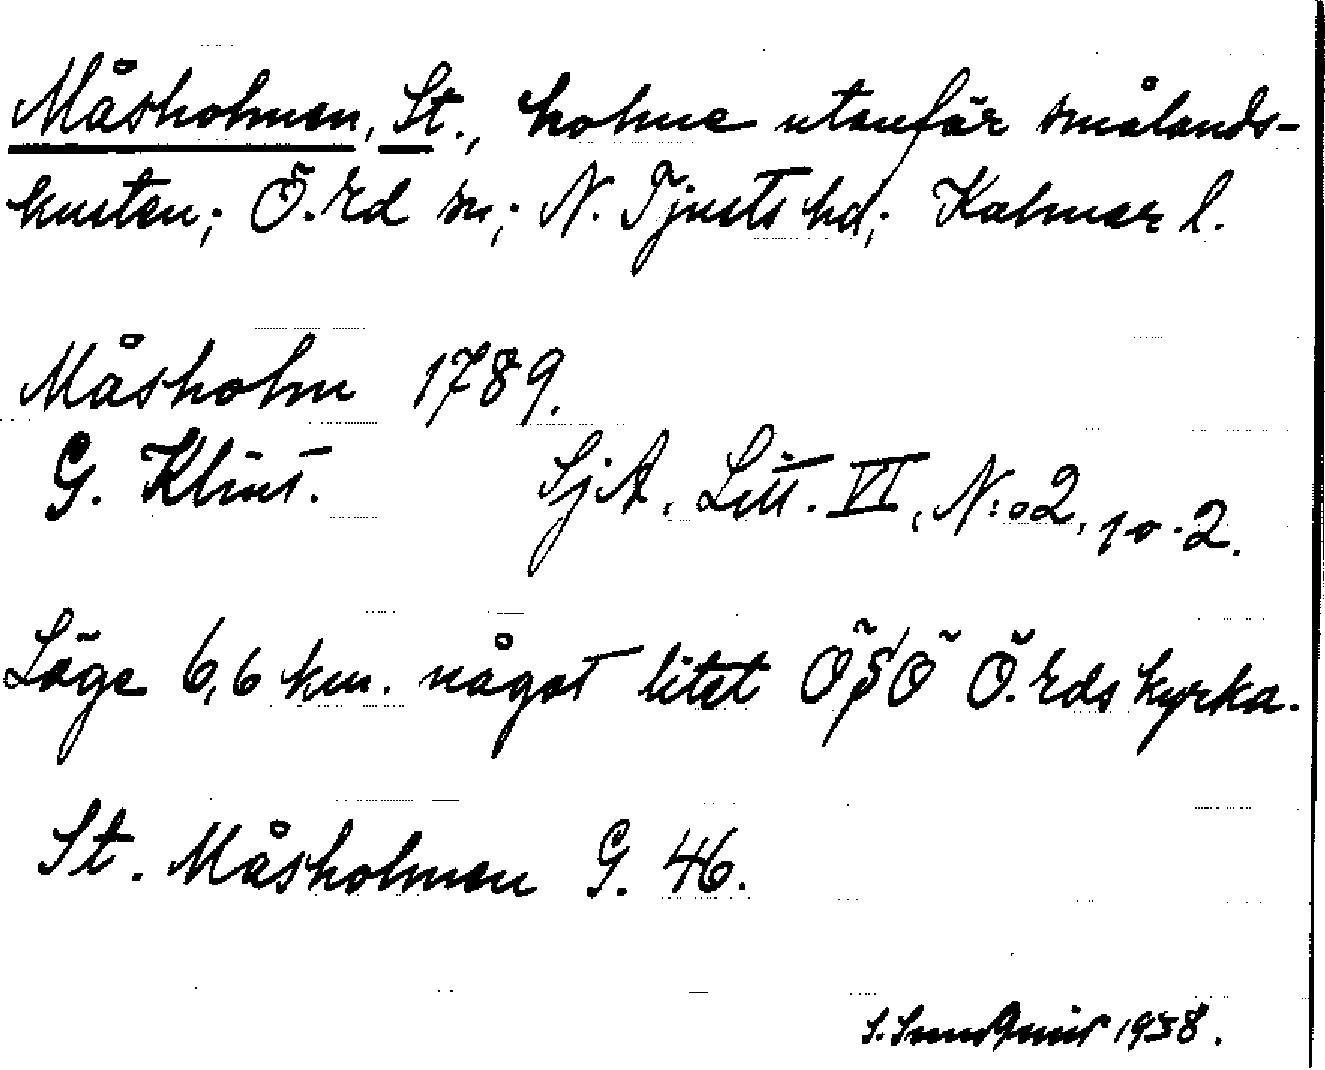 Måsholmen, St., holme utanför smålands-
kusten; Ö. Ed sn; N. Tjusts hd; Kalmar l.
Måsholm 1789.
G. Klint. SjA. Litt. VI, N:o 2, 10.2.
Läge 6,6 km. något litet ÖSÖ Ö. Eds kyrka.
St. Måsholmen G. 46.
S. 1938.